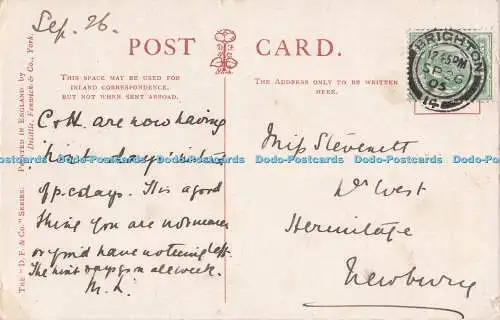 Sep. 26.
POST CARD.
THIS SPACE MAY BE USED FOR
INLAND CORRESPONDENCE,
BUT NOT WHEN SENT ABROAD.
THE ADDRESS ONLY TO BE WRITTEN
HERE.
BRIGHTON
SP 26
05
THE "D. F. & Co." SERIES. PRINTED IN ENGLAND BY
Delittle, Fenwick & Co., York.
are now having
of p.c days. It is a good
thing you are not nearer
or you'd have nothing left.
The hint days go on all week.
M. L.
Miss Stevenett
Dr West
Hermitage
Newbury
Dodo-Postcards Dodo-Postcards Dodo-Postcards Dodo-Postcards Dodo-Postcards